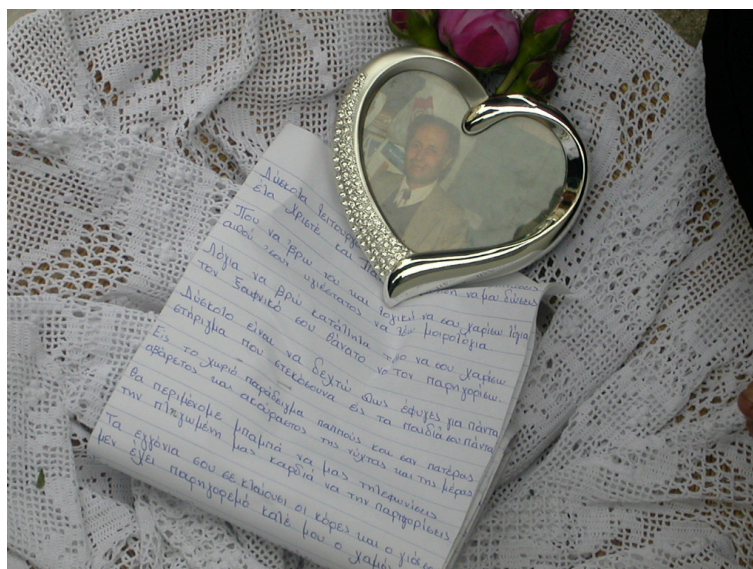 Δύσκολα λειτουργά
έλα Χριστέ και Πα
Που να 'βρω νου και λογική να σου χαρίσω λόγια
αφού ήσουν υγιέστατος να λέω μοιρολόγια
Λόγια να βρω κατάλληλα να σου χαρίσω
τον ξαφνικό σου θάνατο να τον παρηγορίσω.
Δύσκολο είναι να δεχτώ πως έφυγες για πάντα
στήριγμα που στεκόσουνα εις τα παιδιά σου πάντα
Εις το χωριό παράδειγμα παππούς και σαν πατέρας
αβάρετος και ακούραστος της νύχτας και της μέρας
Θα περιμένομε μπαμπά να μας τηλεφωνίσεις
την πληγωμένη μας καρδιά να την παρηγορίσεις
Τα εγγόνια σου σε κλαίουσι οι κόρες και ο γιός σου
μεν έχει παρηγορεμό καλέ μου ο χαμός